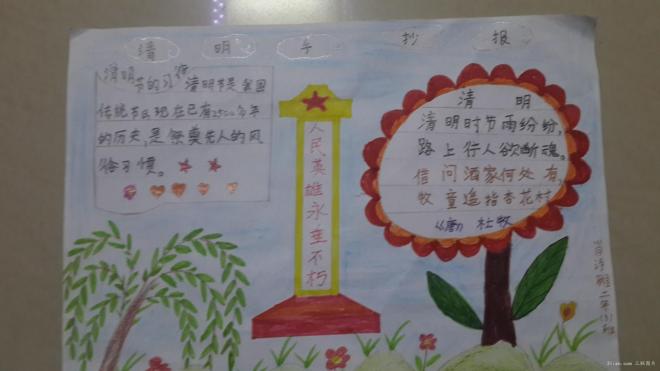 清 明 手 抄 报
清明节的习俗
清明节是我国
传统节日,现在已有2500多年
的历史,是祭奠先人的风
俗习惯。
人民英雄永垂不朽
清 明
清明时节雨纷纷,
路上行人欲断魂。
借问酒家何处有,
牧童遥指杏花村
《唐》 杜牧
二年(3)班